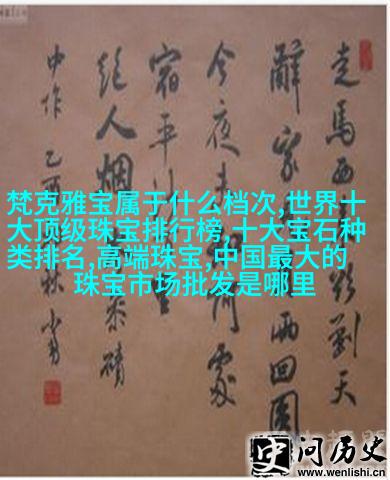 梵克雅宝属于什么档次,世界十
大顶级珠宝排行榜,十大宝石种
类排名,高端珠宝,中国最大的
珠宝市场批发是哪里
走馬西到天
辭家兩回圓
今夜未處
宿平
絕人烟磧
中作乙
史问历史
www.wenlishi.cn